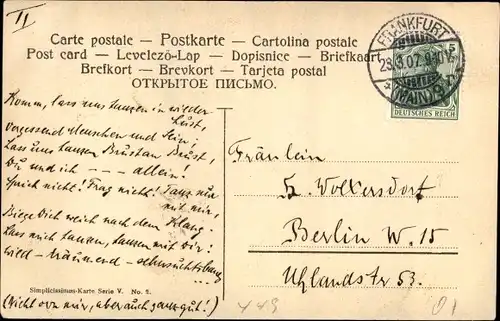 II
Carte postale — Postkarte — Cartolina postale
Post card — Levelező-Lap — Dopisnice — Briefkaart
Brefkort — Brevkort — Tarjeta postal
ОТКРЫТОЕ ПИСЬМО.
FRANKFURT
(MAIN) 9
DEUTSCHES REICH
Komm, lass uns tanzen in wilder
Lust,
vergessend Menschen und Sein,
Lass uns tanzen Brust an Brust,
Du und ich — — — allein!
Sprich nicht! Frag nicht! Tanz nur
mit mir,
Biege Dich weich nach dem Klang.
Lass mich tanzen, tanzen mit Dir!
wild – träumend –
Simplicissimus-Karte Serie V. No. 2.
(Nicht von mir, aber auch ganz gut!)
Fräulein
Wolkersdorf
Berlin W. 15
Uhlandstr 53.
449